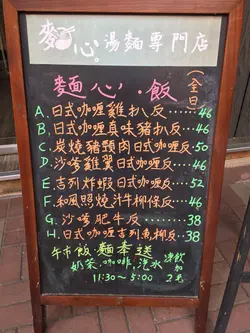 麥心。湯麵專門店
麵心．飯(全日)
A、日式咖喱雞扒反……46
B、日式咖喱真味豬扒反…46
C、炭燒豬頸肉日式咖喱反…50
D、沙爹雞翼日式咖喱反……46
E、吉列炸蝦日式咖喱反……52
F、和風照燒汁牛柳條反……46
G、沙爹肥牛反……38
H、日式咖喱吉列魚柳反…38
午市飯．麵奉送
奶茶，咖啡，汽水 凍飲加2毛
11:30～5:00